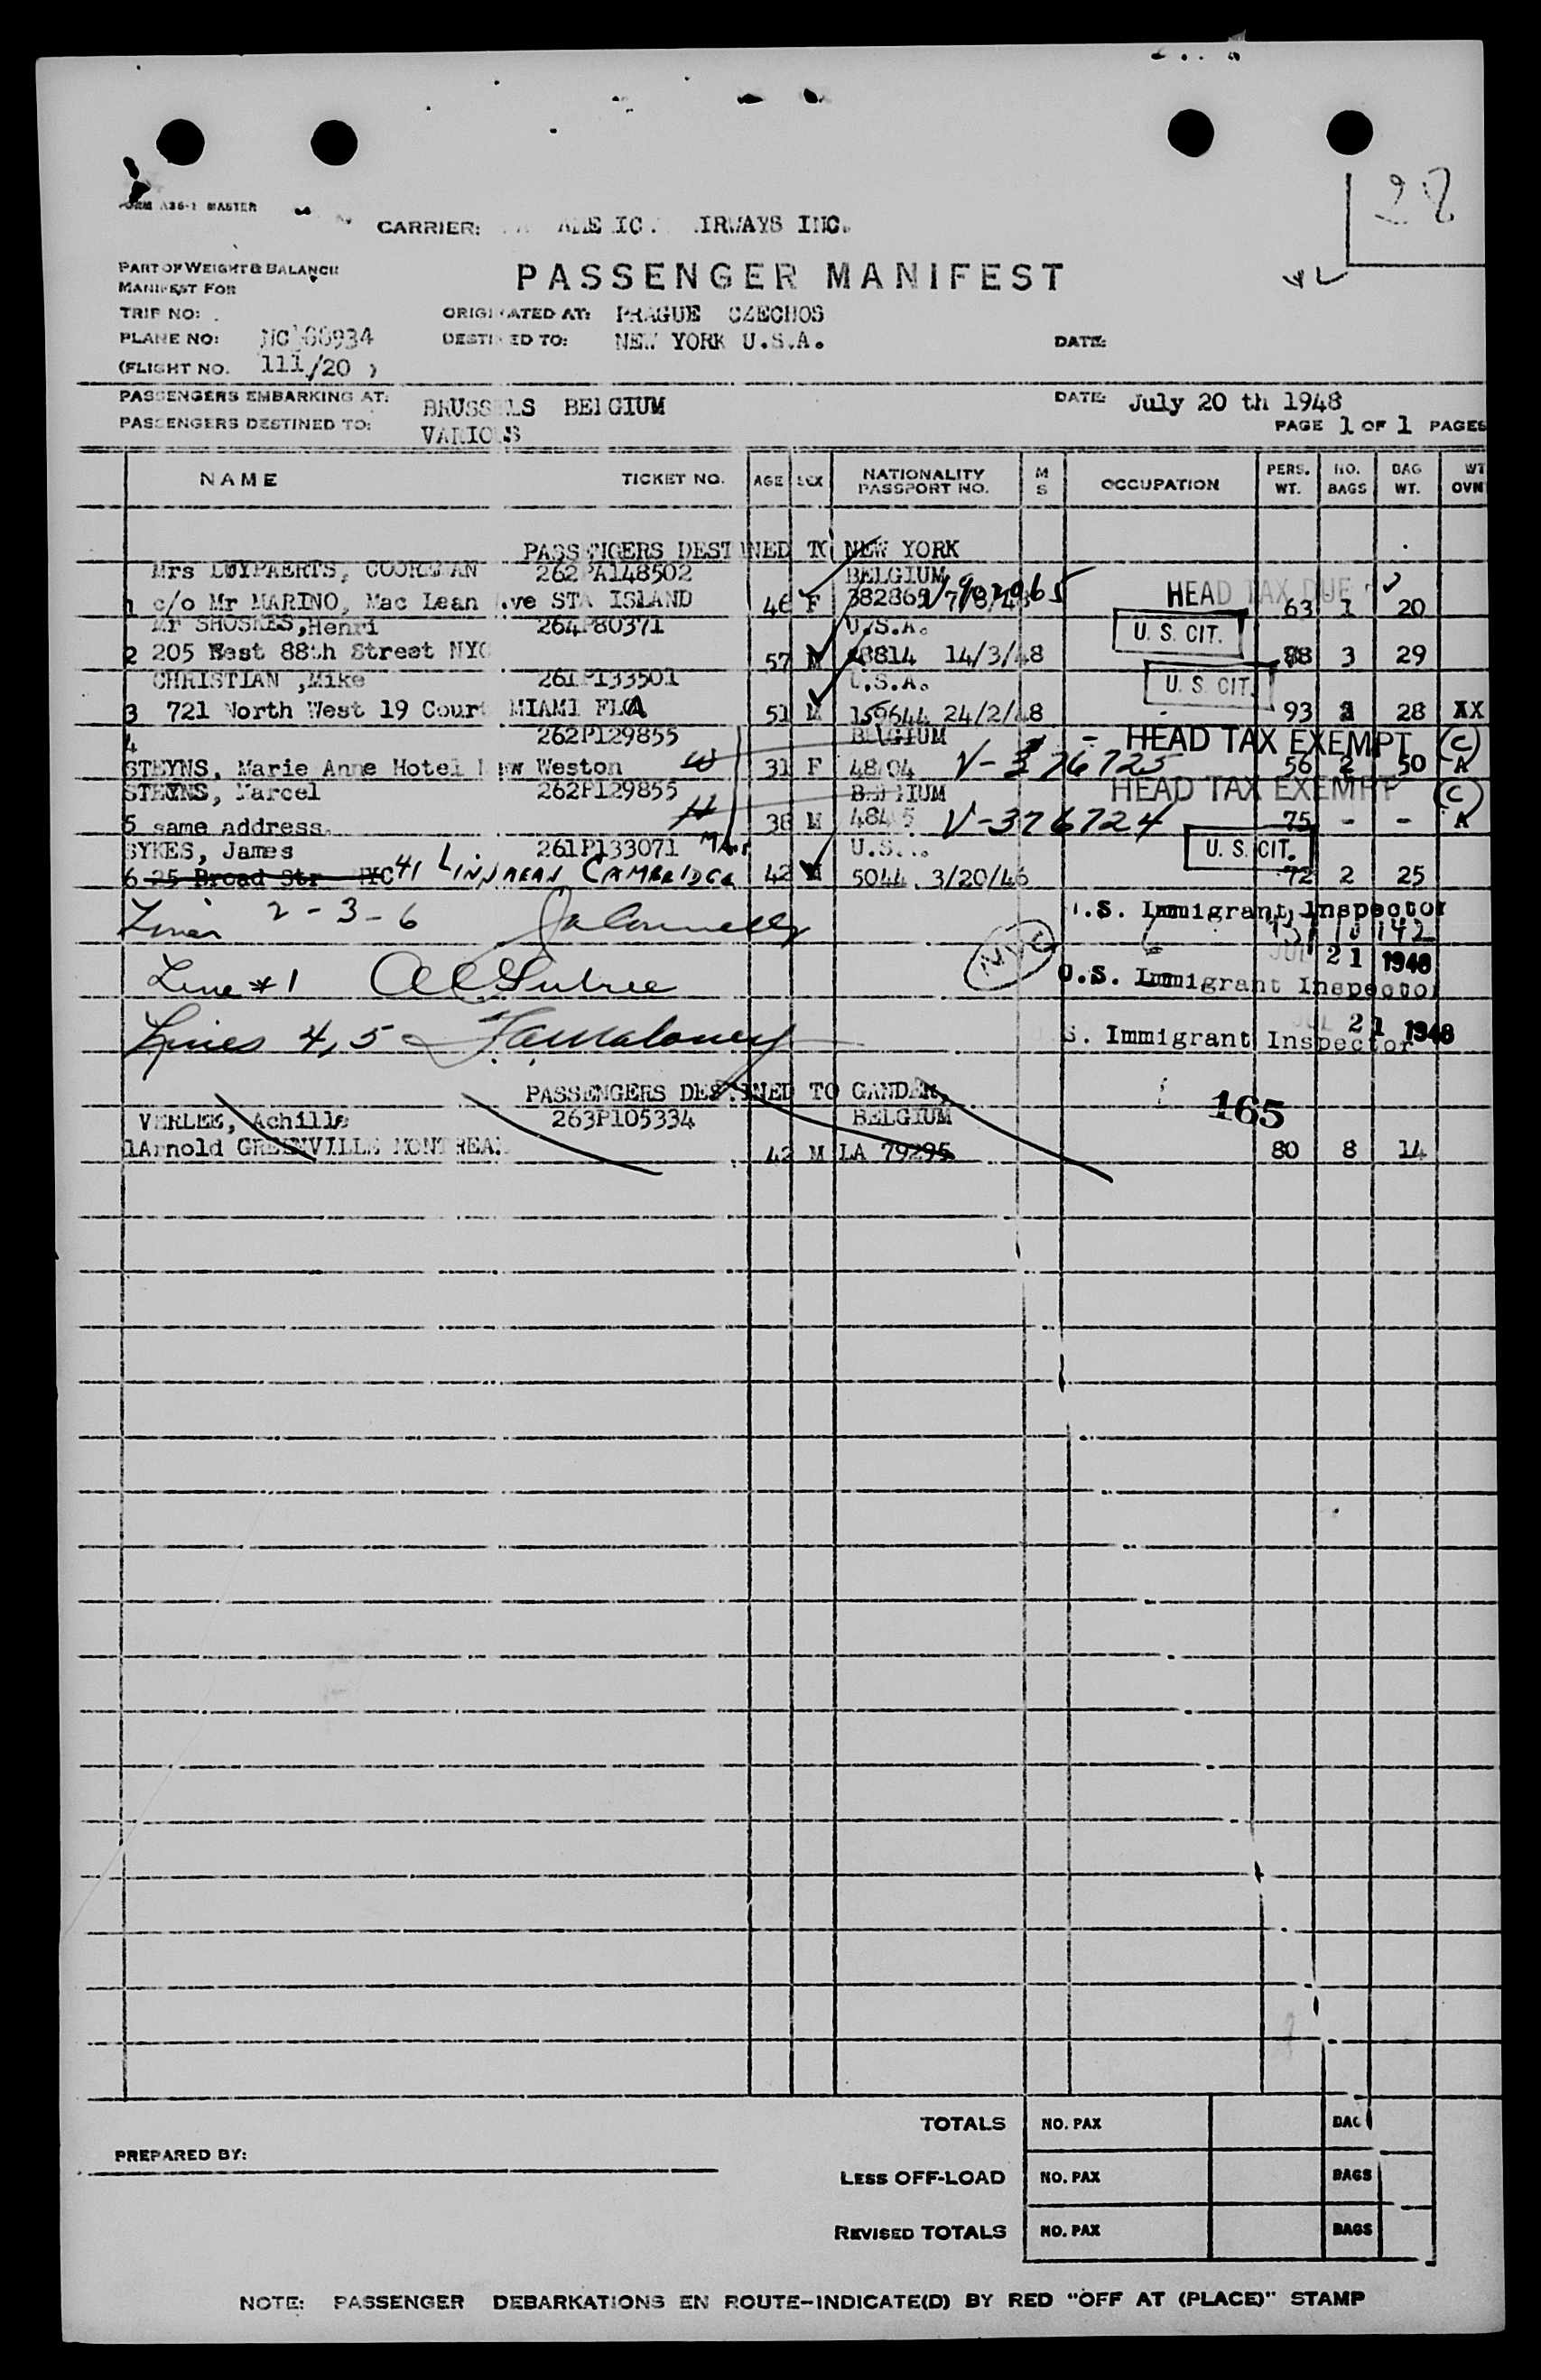 28
FORM A36-1 MASTER
CARRIER: IRWAYS INC.
PART OF WEIGHT & BALANCE
MANIFEST FOR
PASSENGER MANIFEST
TRIP NO:
ORIGINATED AT: PRAGUE CZECHOS
PLANE NO:
DESTINED TO: NEW YORK U.S.A.
DATE:
(FLIGHT NO. 111/20 )
PASSENGERS EMBARKING AT: BRUSSELS BELGIUM
DATE: July 20 th 1948
PASSENGERS DESTINED TO: VARIOUS
PAGE 1 OF 1 PAGES
NAME TICKET NO. AGE SEX NATIONALITY PASSPORT NO. M S OCCUPATION PERS. WT. NO. BAGS BAG WT. WT OVN
PASSENGERS DESTINED TO NEW YORK
Mrs LUYPAERTS, COOREMAN 262PA148502 BELGIUM
1 c/o Mr MARINO, Mac Lean Ave STA ISLAND 46 F 382869 HEAD TAX DUE 63 1 20
Mr SHOSKES,Henri 264P80371 U.S.A. U. S. CIT.
2 205 East 88th Street NYC 57 M 48814 14/3/48 88 3 29
CHRISTIAN ,Mike 261P133501 U.S.A. U. S. CIT.
3 721 North West 19 Court MIAMI FLA 51 M 159644 24/2/48 93 28 XX
4 262P129855 BELGIUM HEAD TAX EXEMPT C
STEYNS, Marie Anne Hotel New Weston W 31 F 48404 V-376725 56 2 50 A
STEYNS, Marcel 262P129855 BELGIUM HEAD TAX EXEMPT C
5 same address. H 38 M 48405 V-376724 75 - - A
SYKES, James 261P133071 U.S.A. U. S. CIT.
6 25 Broad Str NYC 41 LINNAEAN CAMBRIDGE 42 M 5044 3/20/46 72 2 25
Lines 2-3-6 U.S. Immigrant Inspector
JUL 21 1948
Line #1 U.S. Immigrant Inspector
JUL 21 1948
Lines 4,5 U.S. Immigrant Inspector
PASSENGERS DESTINED TO GANDER,
165
VERLEE, Achille 263P105334 BELGIUM
1Arnold GREENVILLE MONTREAL 42 M LA 79295 80 8 14
TOTALS NO. PAX BAGS
PREPARED BY:
LESS OFF-LOAD NO. PAX BAGS
REVISED TOTALS NO. PAX BAGS
NOTE: PASSENGER DEBARKATIONS EN ROUTE-INDICATE(D) BY RED "OFF AT (PLACE)" STAMP